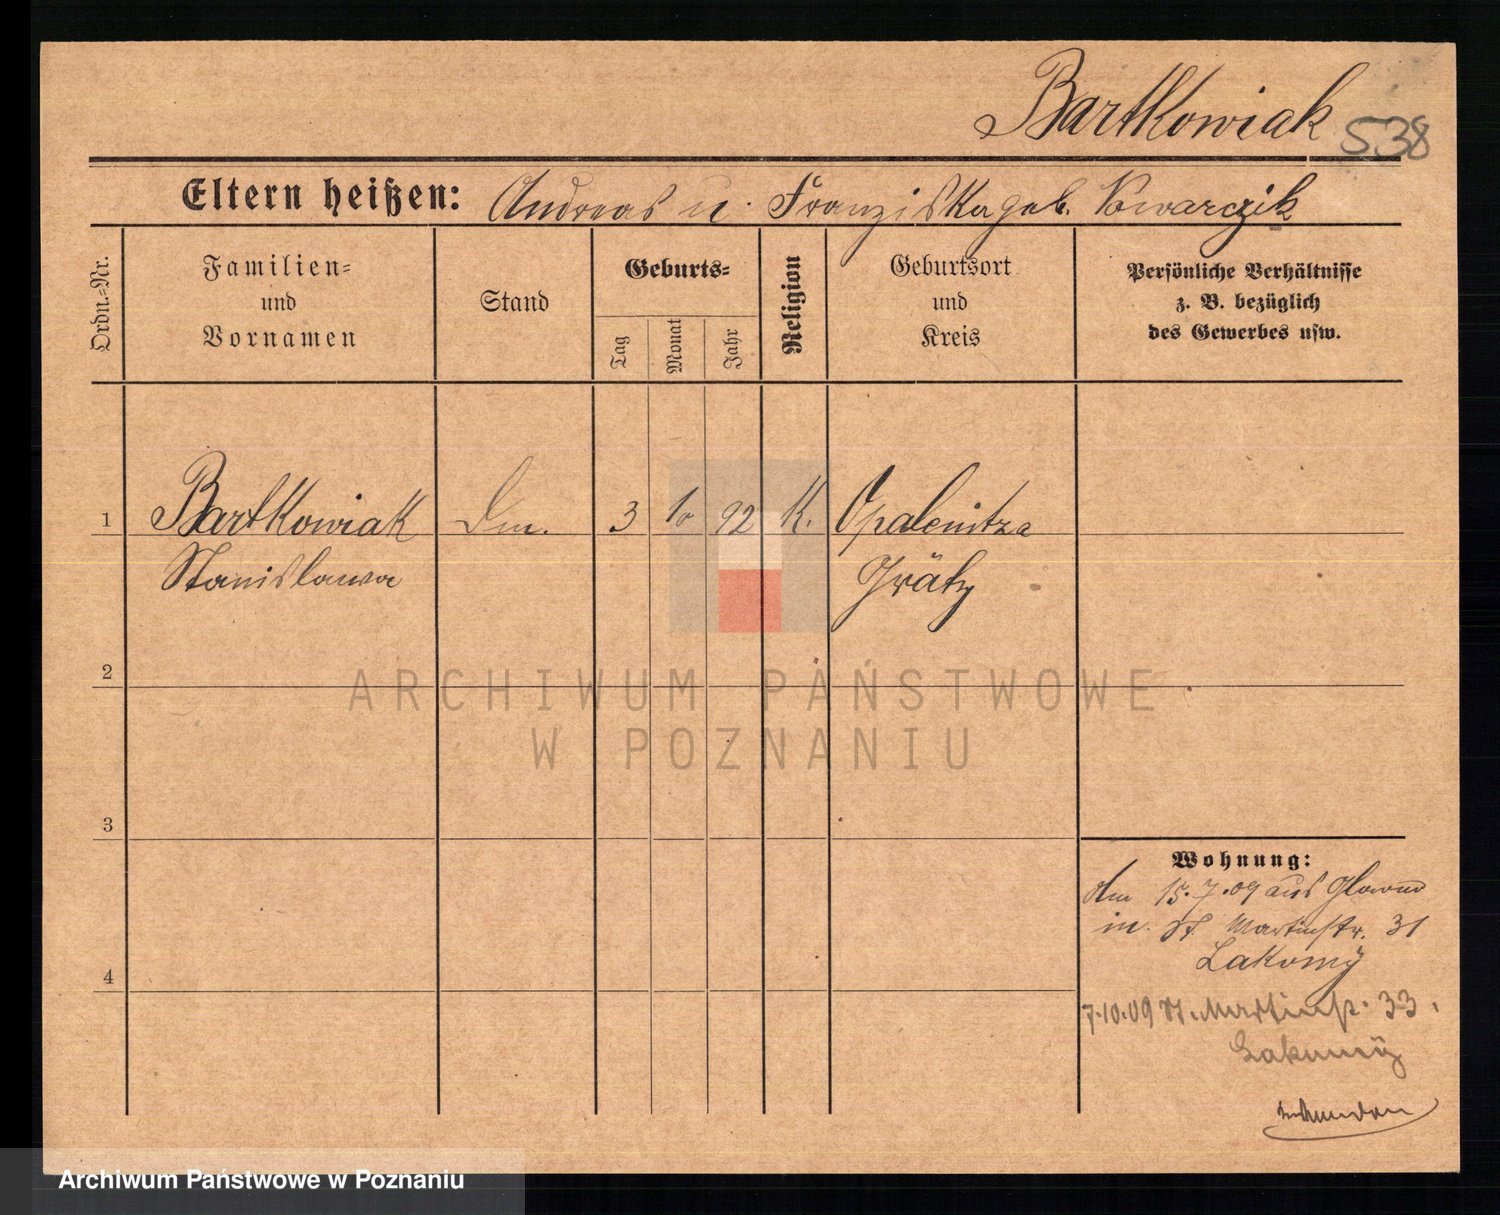 Bartkowiak 538
Eltern heißen: Andreas u. Franziska geb. Nowarczik
Ordn.-Nr.
Familien-
und
Vornamen
Stand
Geburts-
Tag
Monat
Jahr
Religion
Geburtsort
und
Kreis
Persönliche Verhältnisse
z. B. bezüglich
des Gewerbes usw.
1 Bartkowiak 3 10 92 K. Opalenitza
Stanislawa Grätz
2
3
4
Wohnung:
15.7.09 aus Glowno
in. St. Martinstr. 31
Lakomy
7.10.09 St. Martinstr. 33.
Lakomy
ARCHIWUM PAŃSTWOWE
W POZNANIU
Archiwum Państwowe w Poznaniu